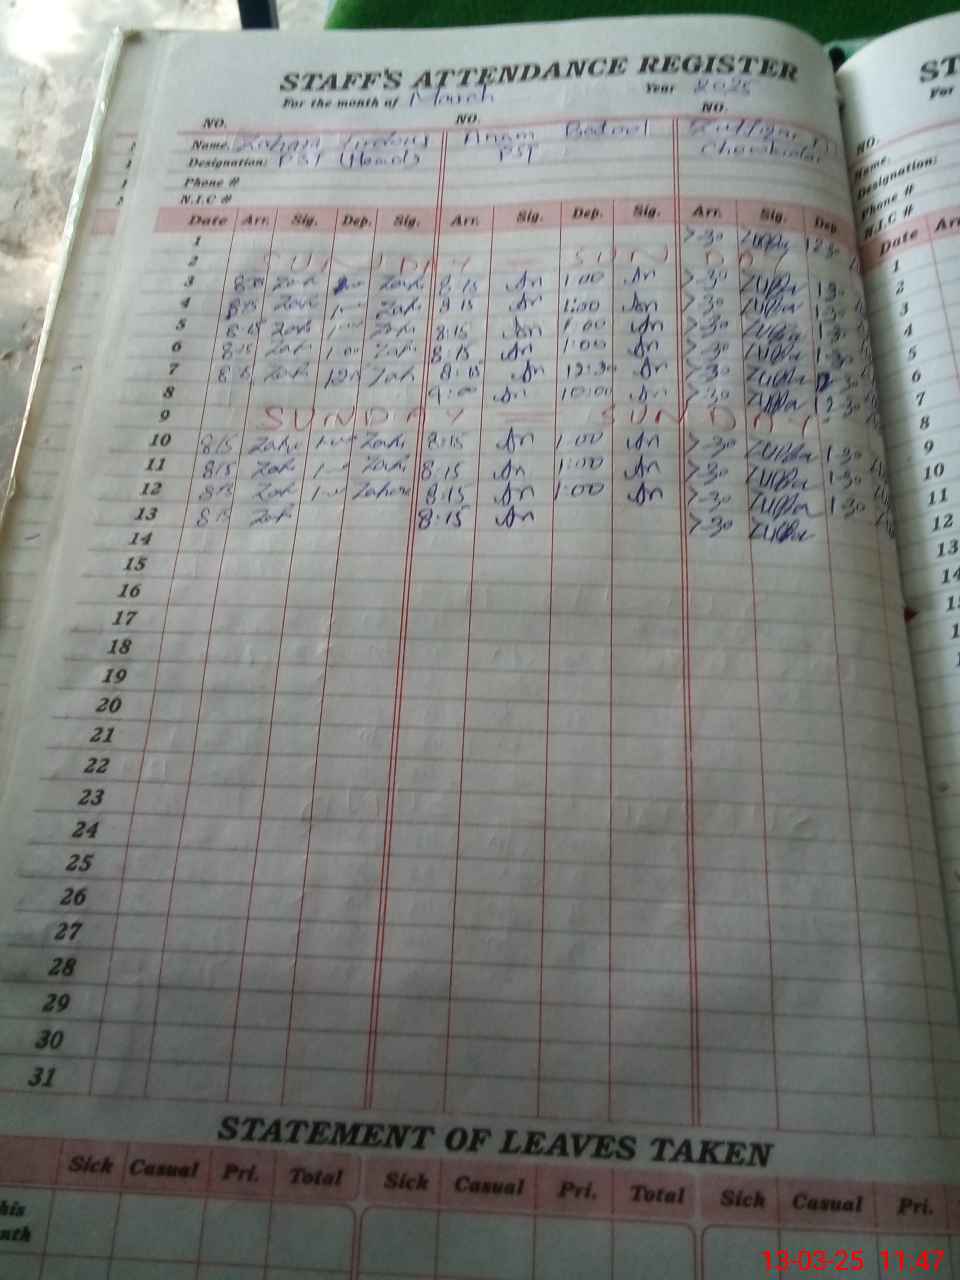 STAFF'S ATTENDANCE REGISTER
For the month of March Year 2025
NO. NO. NO.
Name. Zahara Anam Batool Zulfiqar
Designation: PST (Head) PST Chowkidar
Phone #
N.I.C #
Date Arr. Sig. Dep. Sig. Arr. Sig. Dep. Sig. Arr. Sig. Dep.
1 7:30 12:30
2 SUNDAY = SUNDAY
3 8:15 Zah Zah 8:15 An 1:00 An 7:30 1:30
4 8:15 Zah Zah 8:15 An 1:00 An 7:30 1:30
5 8:15 Zah Zah 8:15 An 1:00 An 7:30 1:30
6 8:15 Zah 1:00 Zah 8:15 An 1:00 An 7:30 1:30
7 8:15 Zah Zah 8:15 An 12:30 An 7:30 12:30
8 9:00 An 10:00 An 7:30 12:30
9 SUNDAY = SUNDAY
10 815 Zah Zah 8:15 An 1:00 An 7:30 1:30
11 815 Zah Zah 8:15 An 1:00 An 7:30 1:30
12 815 Zah Zahara 8:15 An 1:00 An 7:30 1:30
13 815 Zah 8:15 An 7:30
14
15
16
17
18
19
20
21
22
23
24
25
26
27
28
29
30
31
STATEMENT OF LEAVES TAKEN
Sick Casual Pri. Total Sick Casual Pri. Total Sick Casual Pri.
ST
For
NO.
Name.
Designation:
Phone #
N.I.C #
Date Arr
1
2
3
4
5
6
7
8
9
10
11
12
13
14
13-03-25 11:47